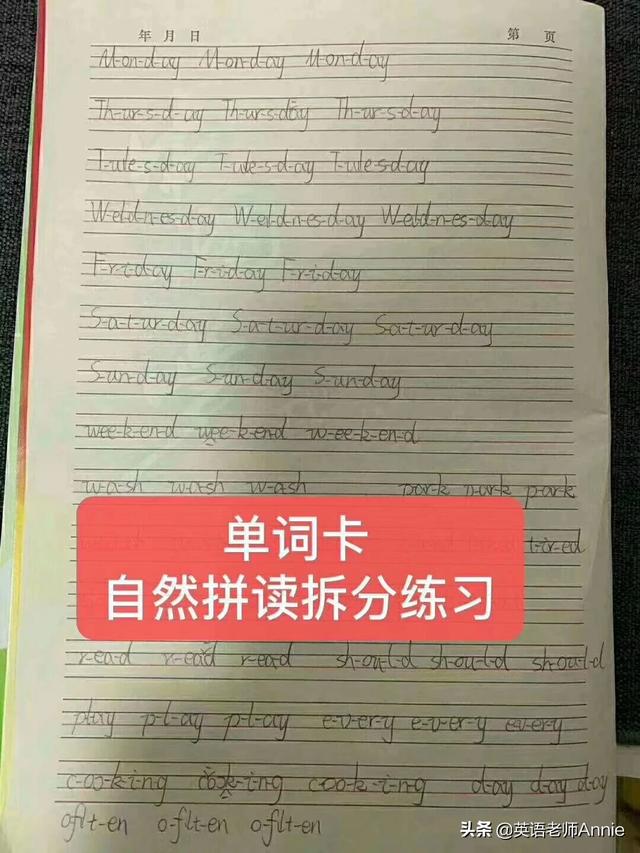 年 月 日 第 页
M-on-d-ay M-on-d-ay M-on-d-ay
Th-ur-s-d-ay Th-ur-s-day Th-ur-s-d-ay
T-ue-s-d-ay T-ue-s-d-ay T-ue-s-d-ay
W-ed-n-es-d-ay W-ed-n-es-d-ay W-ed-n-es-d-ay
F-r-i-d-ay F-r-i-d-ay F-r-i-d-ay
S-a-t-ur-d-ay S-a-t-ur-d-ay S-a-t-ur-d-ay
S-un-d-ay S-un-d-ay S-un-d-ay
w-ee-k-en-d w-ee-k-en-d w-ee-k-en-d
w-a-sh w-a-sh w-a-sh p-ar-k p-ar-k p-ar-k
单词卡
t-ir-ed
自然拼读拆分练习
r-ea-d r-ea-d r-ea-d sh-ou-l-d sh-ou-l-d sh-ou-l-d
play p-l-ay p-l-ay e-v-er-y e-v-er-y e-v-er-y
c-oo-k-i-n-g c-oo-k-i-n-g c-oo-k-i-n-g d-ay d-ay d-ay
o-f-t-en o-f-t-en o-f-t-en
头条 @英语老师Annie